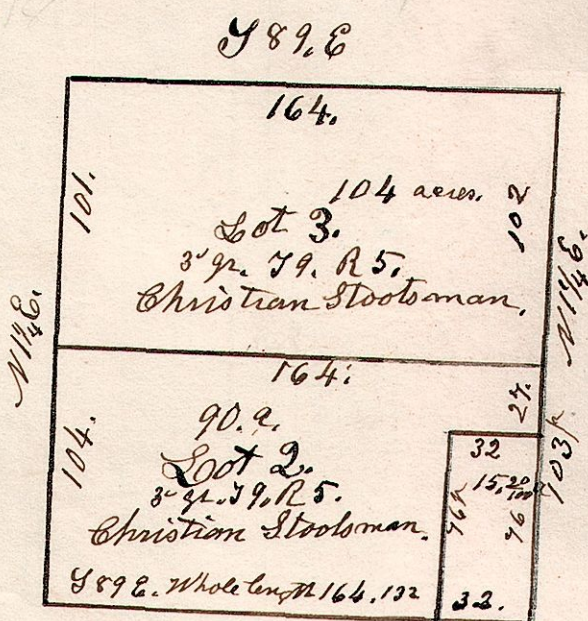 S 89. E
164.
101.
104 acres.
102
Lot 3.
3d qr. T 9. R 5.
Christian Stootsman.
N 1 1/4 E.
N 1 1/4 E.
164.
27.
90. a.
104.
103 p
Lot 2.
3d qr. T 9. R 5.
Christian Stootsman.
32
15. 20/100 a
76 p
76
S 89 E. Whole length 164. 132
32.